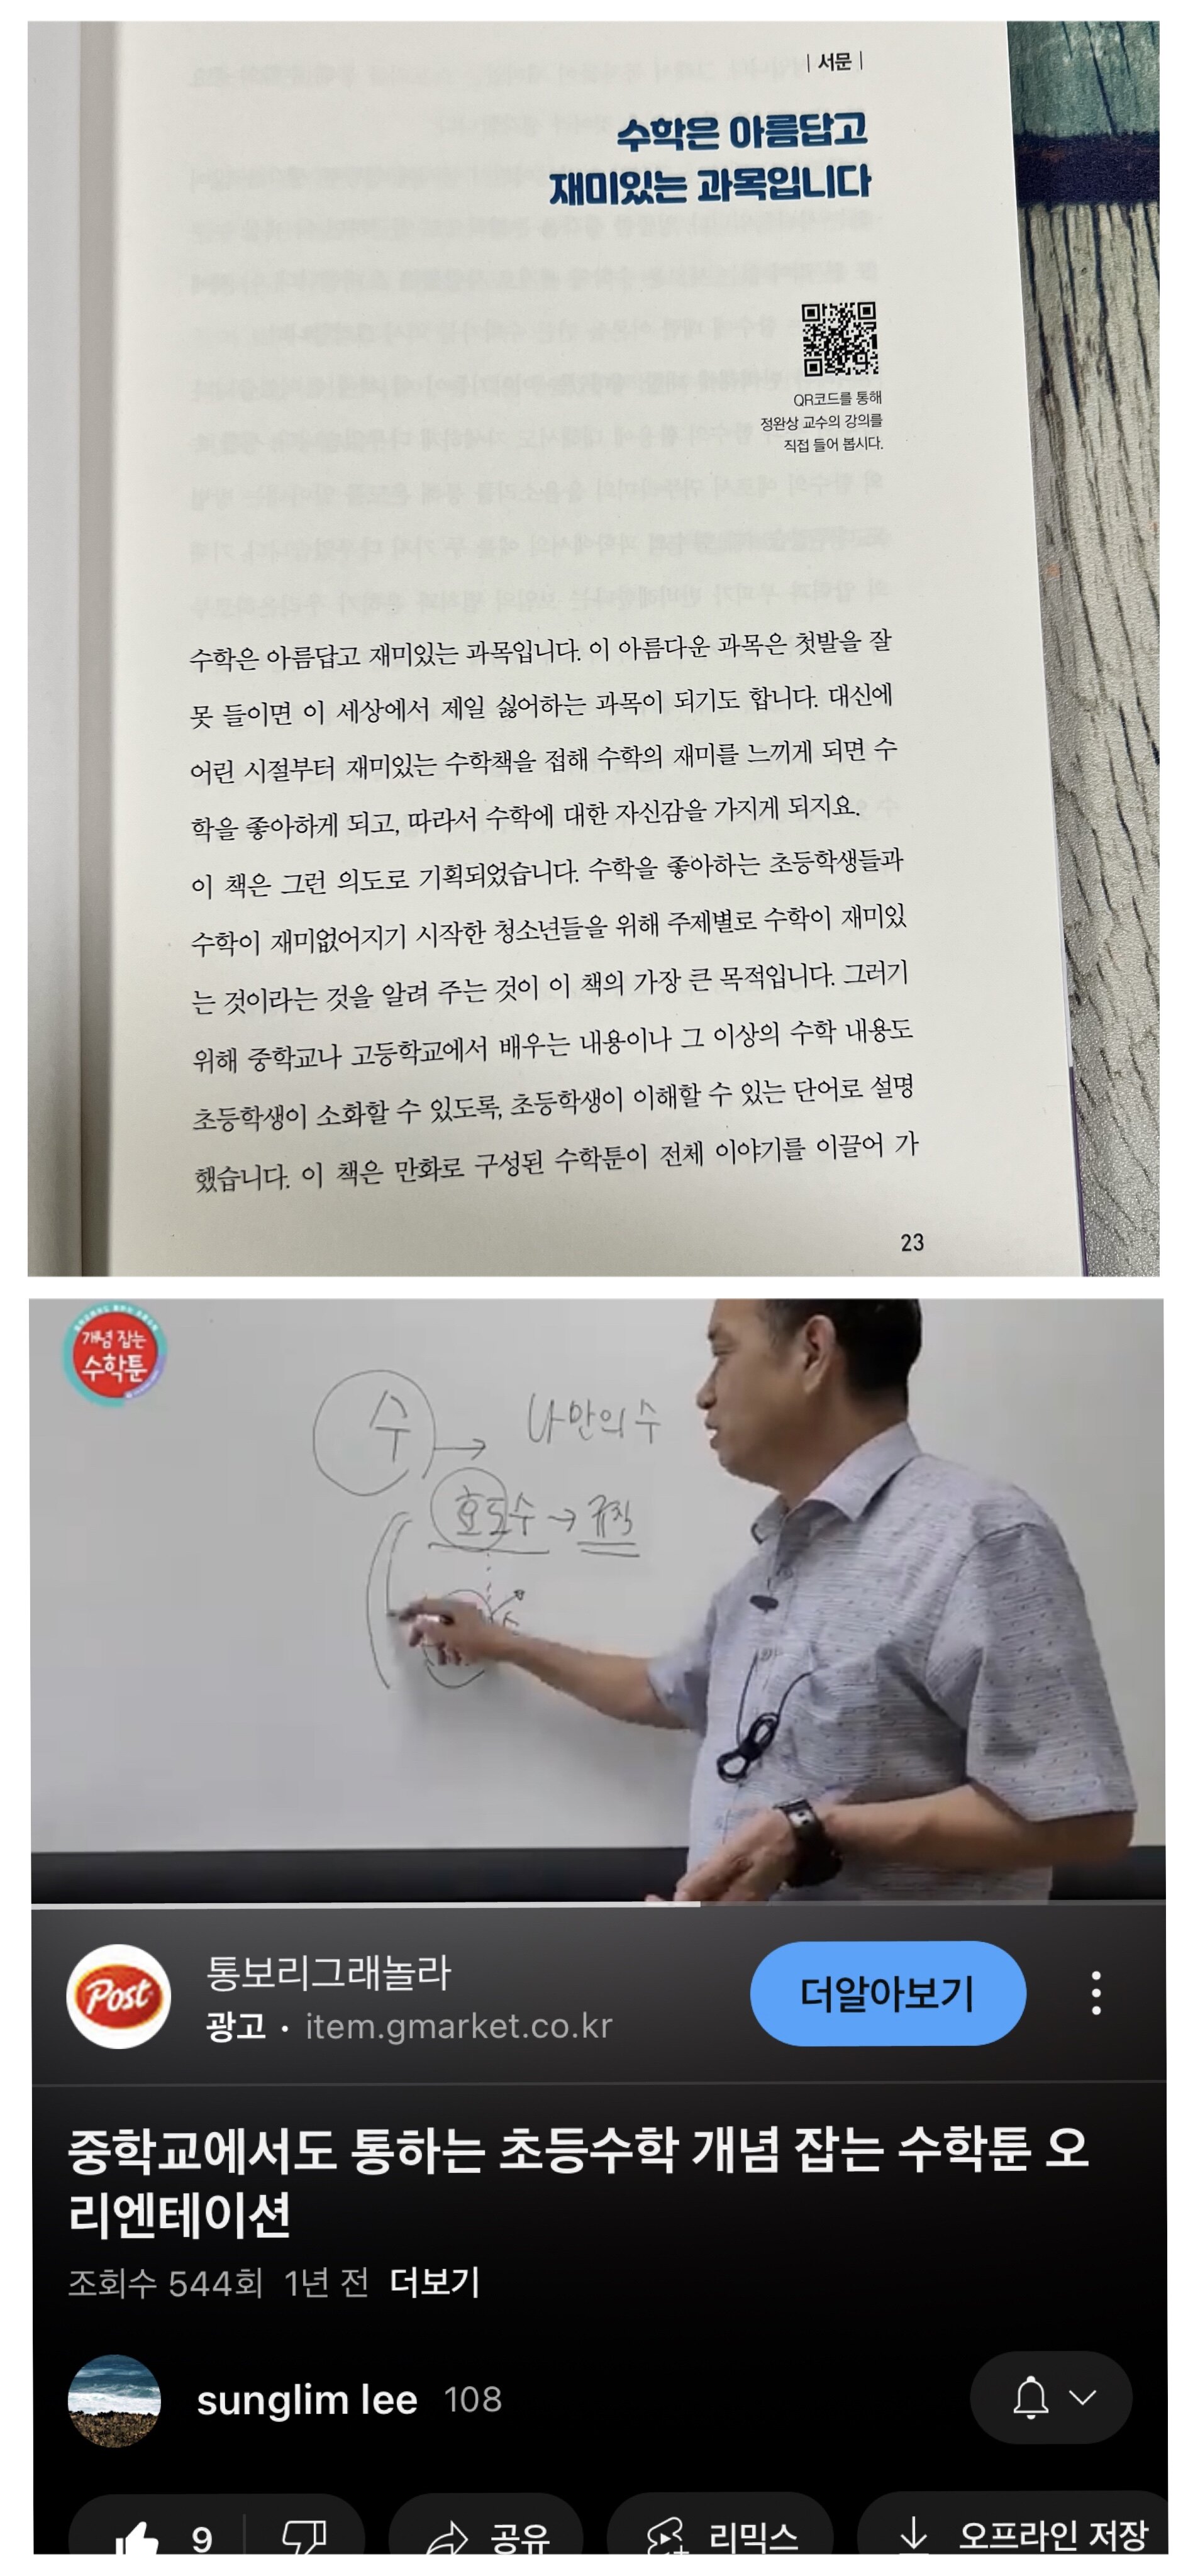 | 서문 |
수학은 아름답고
재미있는 과목입니다
QR코드를 통해
정완상 교수의 강의를
직접 들어 봅시다.
수학은 아름답고 재미있는 과목입니다. 이 아름다운 과목은 첫발을 잘
못 들이면 이 세상에서 제일 싫어하는 과목이 되기도 합니다. 대신에
어린 시절부터 재미있는 수학책을 접해 수학의 재미를 느끼게 되면 수
학을 좋아하게 되고, 따라서 수학에 대한 자신감을 가지게 되지요.
이 책은 그런 의도로 기획되었습니다. 수학을 좋아하는 초등학생들과
수학이 재미없어지기 시작한 청소년들을 위해 주제별로 수학이 재미있
는 것이라는 것을 알려 주는 것이 이 책의 가장 큰 목적입니다. 그러기
위해 중학교나 고등학교에서 배우는 내용이나 그 이상의 수학 내용도
초등학생이 소화할 수 있도록, 초등학생이 이해할 수 있는 단어로 설명
했습니다. 이 책은 만화로 구성된 수학툰이 전체 이야기를 이끌어 가
23
개념 잡는
수학툰
수 → 나만의 수
호도수 → 규칙
Post
통보리그래놀라
광고 · item.gmarket.co.kr
더알아보기
중학교에서도 통하는 초등수학 개념 잡는 수학툰 오
리엔테이션
조회수 544회 1년 전 더보기
sunglim lee 108
9
공유
리믹스
오프라인 저장